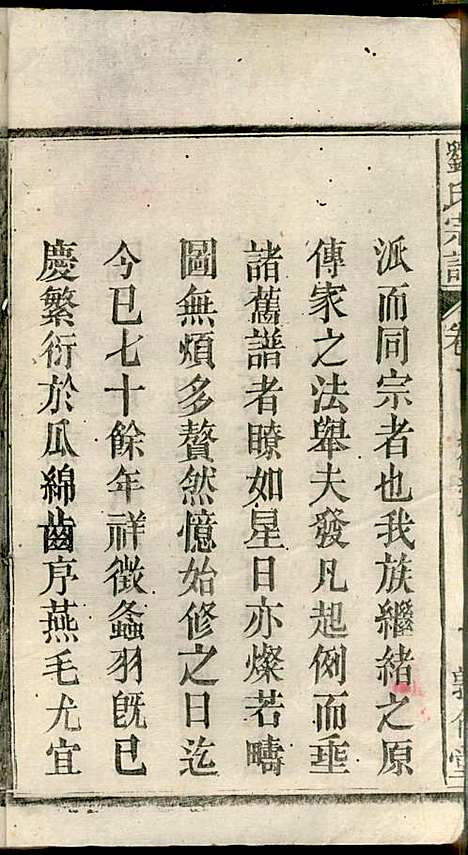 劉氏宗譜
卷
派而同宗者也我族繼緒之原
傳家之法舉夫發凡起例而垂
諸舊譜者瞭如星日亦燦若疇
圖無煩多贅然憶始修之日迄
今已七十餘年祥徵螽羽既已
慶繁衍於瓜綿齒序燕毛尤宜